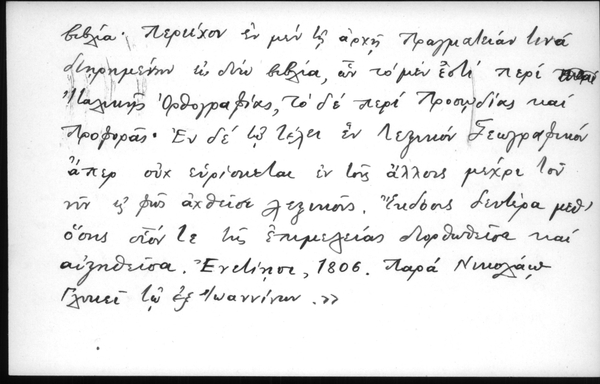 βιβλία· Περιέχον ἐν μὲν τῇ ἀρχῇ Πραγματείαν τινά
διῃρημένην εἰς δύο βιβλία, ὧν τὸ μὲν ἐστί περί
Ἰταλικῆς Ὀρθογραφίας, τὸ δέ περί Προσῳδίας καί
Προφορᾶς· Ἐν δέ τῷ τέλει ἓν Λεξικόν Γεωγραφικόν
ἅπερ οὐχ εὑρίσκεται ἐν τοῖς ἄλλοις μέχρι τοῦ
νῦν εἰς φῶς ἀχθεῖσι λεξικοῖς. Ἔκδοσις δευτέρα μεθ'
ὅσης οἷόν τε τῆς ἐπιμελείας διορθωθεῖσα καί
αὐξηθεῖσα. Ἐνετίῃσι, 1806. Παρά Νικολάῳ
Γλυκεῖ τῷ ἐξ Ἰωαννίνων.»